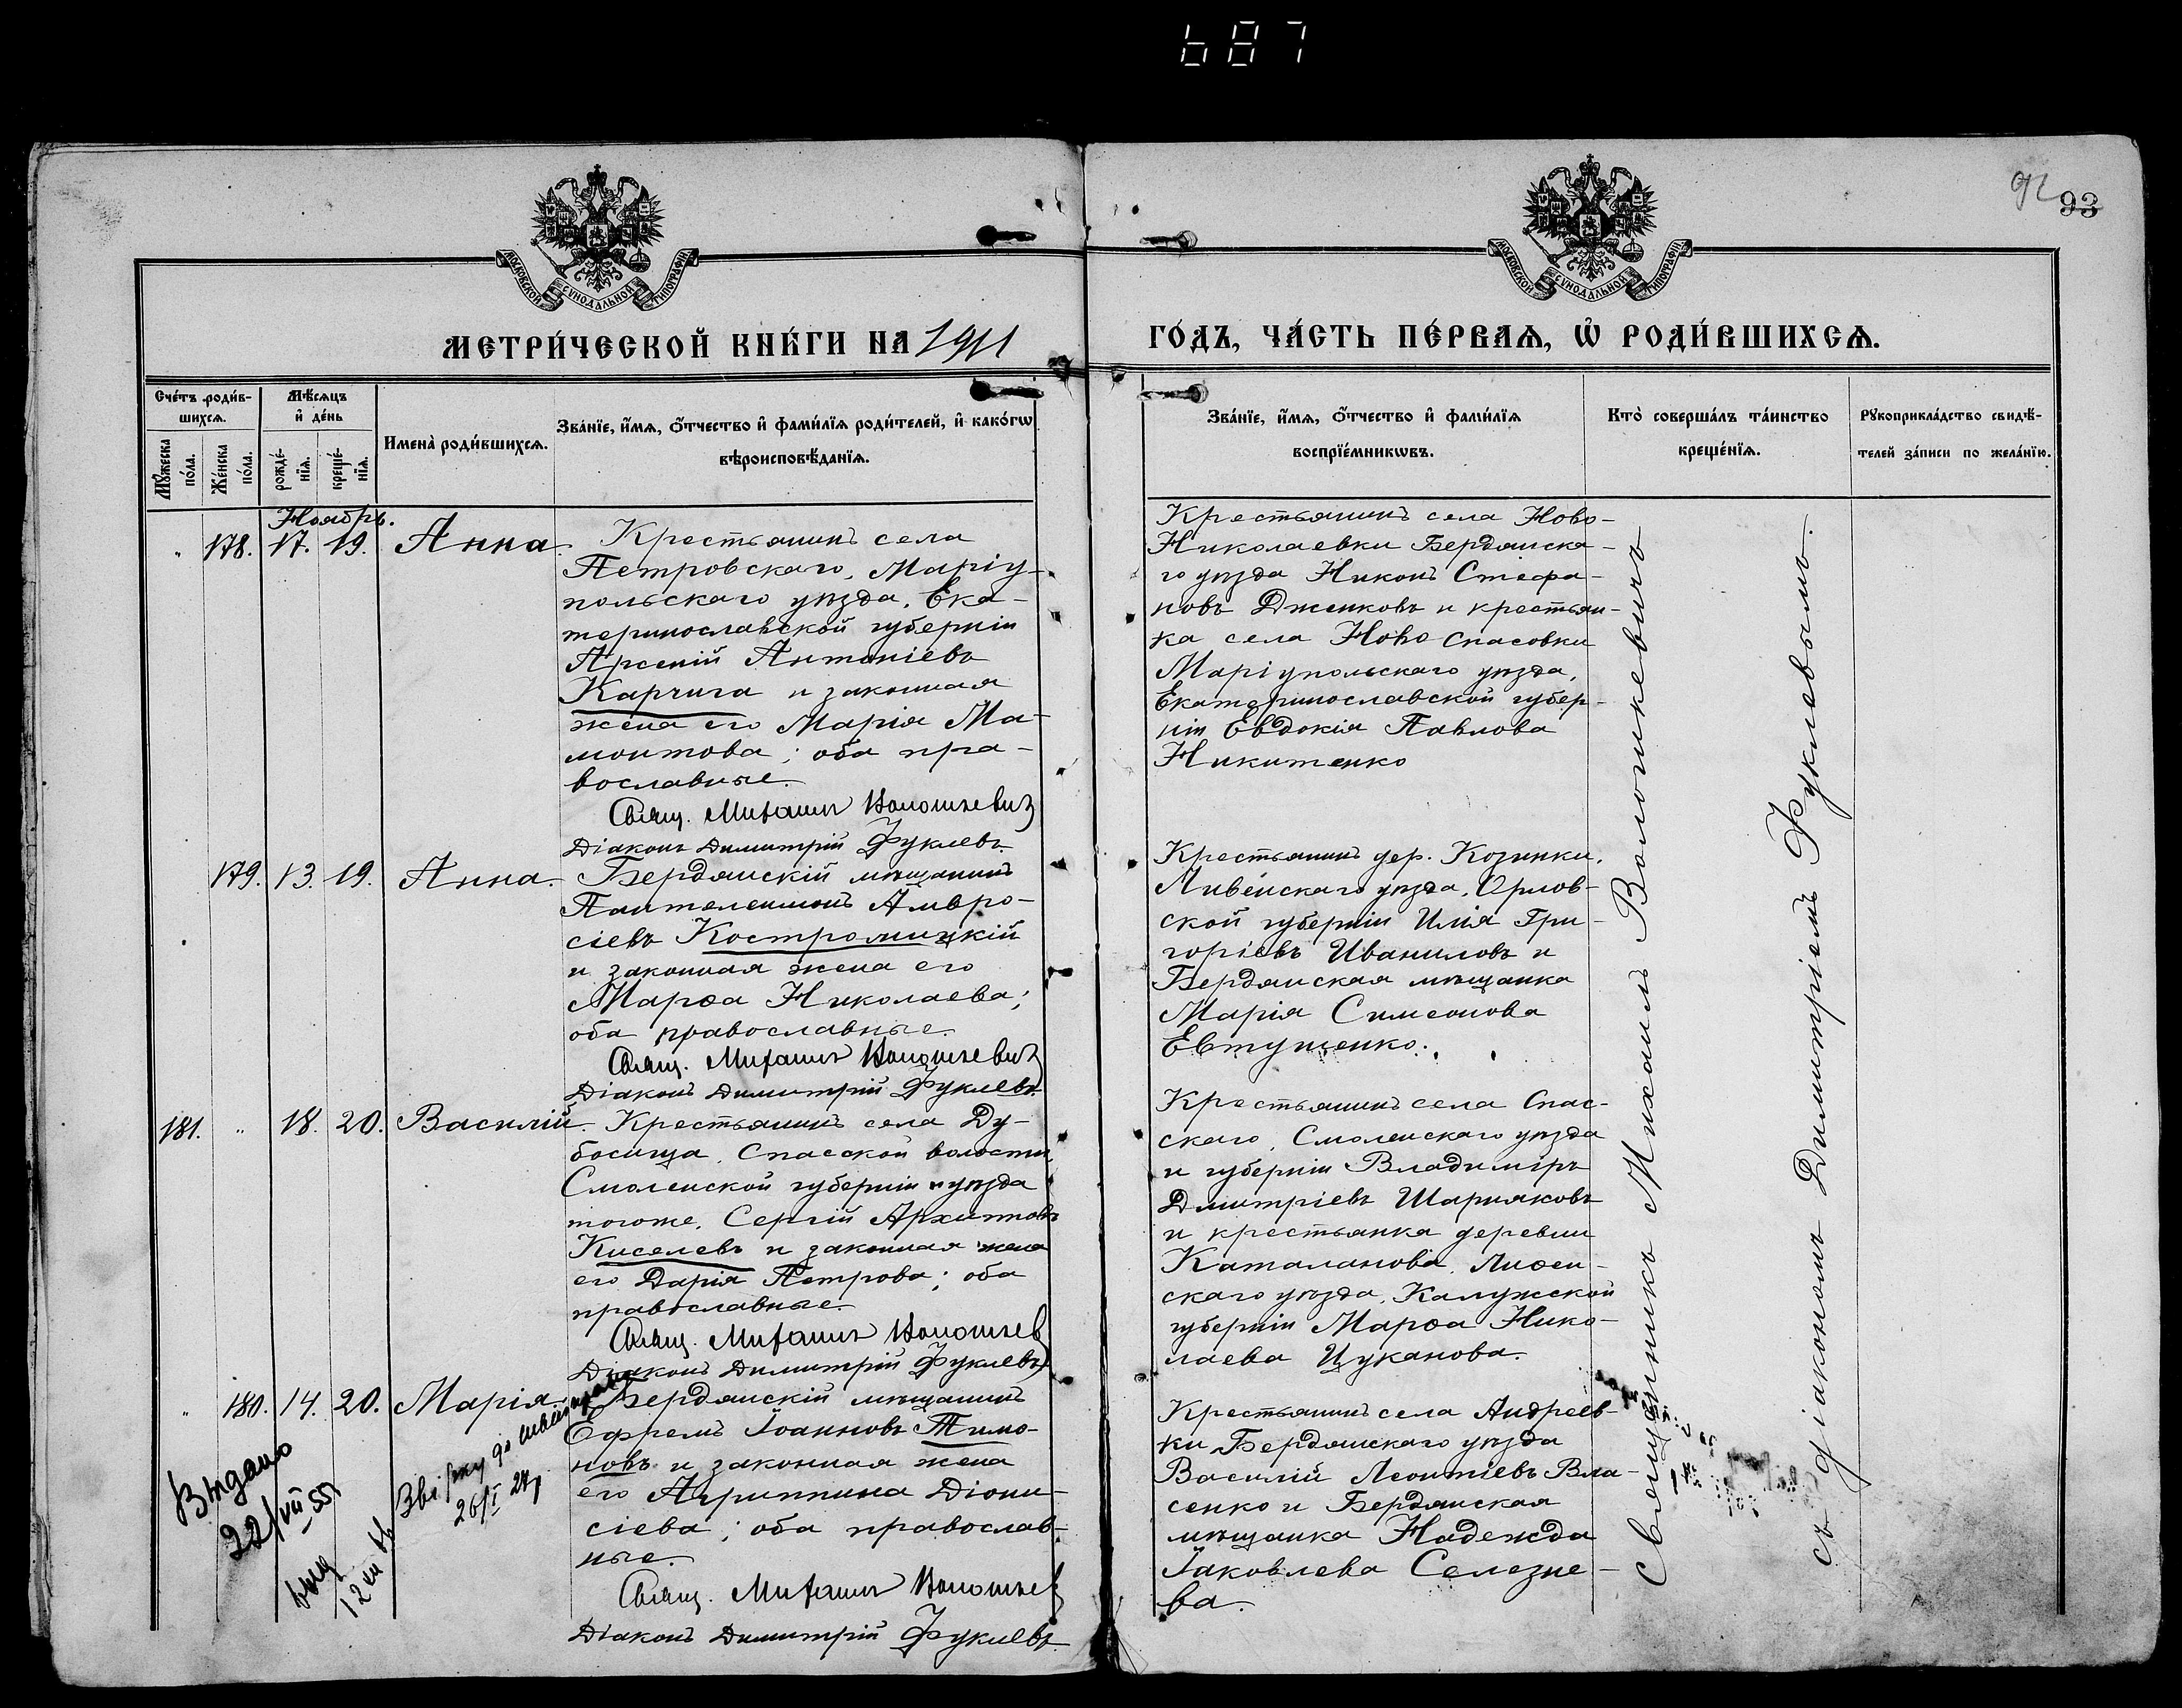 687
92
93
МОСКОВСКОЙ СУНОДАЛЬНОЙ ТИПОГРАФІИ
МОСКОВСКОЙ СУНОДАЛЬНОЙ ТИПОГРАФІИ
МЕТРИ́ЧЕСКОЙ КНИ́ГИ НА 1911
ГО́ДЪ, ЧА́СТЬ ПЕ́РВАѦ, Ѡ҆ РОДИ́ВШИХСѦ.
Сче́тъ роди́в-
шихсѧ.
Мѣ́сѧцъ
и҆ де́нь
Мꙋ́жеска
по́ла.
Же́нска
по́ла.
рожде́-
нїѧ.
креще́-
нїѧ.
Имена̀ роди́вшихсѧ.
Зва́нїе, и҆́мѧ, ѻ҆́тчество и҆ фами́лїѧ роди́телей, и҆ како́гѡ
вѣроисповѣ́данїѧ.
Зва́нїе, и҆́мѧ, ѻ҆́тчество и҆ фами́лїѧ
воспрїе́мникѡвъ.
Кто̀ соверша́лъ та́инство
креще́нїѧ.
Рꙋкоприкла́дство свидѣ́-
телей за́писи по жела́нїю.
Ноябрь.
" 178. 17. 19. Анна.
Крестьянинъ села
Петровскаго, Маріу-
польскаго уѣзда, Ека-
теринославской губерніи
Арсеній Антоніевъ
Карчига и законная
жена его Марія Ма-
монтова; оба пра-
вославные.
Свящ. Михаилъ Волошкевич
Діаконъ Димитрій Фуклевъ.
Крестьянинъ села Ново-
Николаевки Бердянска-
го уѣзда Никонъ Стефа-
новъ Дженковъ и крестьян-
ка села Ново Спасовки
Маріупольскаго уѣзда,
Екатеринославской губер-
ніи Евдокія Павлова
Никитенко
179. 13. 19. Анна.
Бердянскій мѣщанинъ
Пантелеимонъ Амвро-
сіевъ Костромицкій
и законная жена его
Марѳа Николаева;
оба православные.
Свящ. Михаилъ Волошкевич
Діаконъ Димитрій Фуклевъ.
Крестьянинъ дер. Козинки,
Ливенскаго уѣзда, Орлов-
ской губерніи Илія Гри-
горіевъ Иваниловъ и
Бердянская мѣщанка
Марія Симеонова
Евтушенко.
181. " 18. 20. Василій.
Крестьянинъ села Ду-
босища, Спасской волости
Смоленской губерніи и уѣзда
тогоже, Сергій Архиповъ
Киселевъ и законная жена
его Дарія Петрова; оба
православные.
Свящ. Михаилъ Волошкев
Діаконъ Димитрій Фуклевъ
Крестьянинъ села Спас-
скаго, Смоленскаго уѣзда
и губерніи Владиміръ
Дмитріевъ Шаршаковъ
и крестьянка деревни
Каталанова,
скаго уѣзда, Калужской
губерніи Марѳа Нико-
лаева Цуканова.
" 180. 14. 20. Марія.
Бердянскій мѣщанинъ
Ефремъ Іоанновъ Тимо-
новъ и законная жена
его Агриппина Діони-
сіева; оба православ-
ные.
Свящ. Михаилъ Волошкев
Діаконъ Димитрій Фуклевъ.
Крестьянинъ села Андреев-
ки Бердянскаго уѣзда
Василій Леонтіевъ Вла-
сенко и Бердянская
мѣщанка Надежда
Іаковлева Селезне-
ва.
Видано
22/VII-55
Священникъ Михаилъ Волошкевичъ
съ діакономъ Димитріемъ Фуклевымъ.